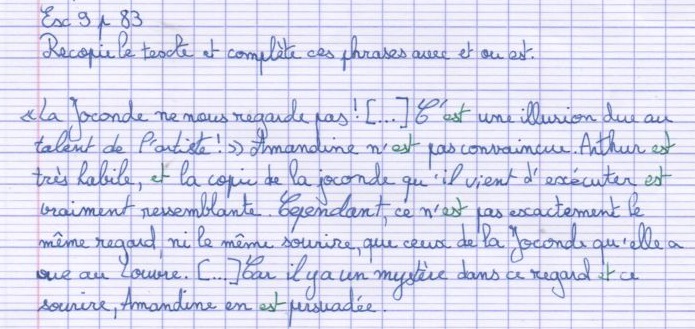 Exc 9 p 83
Recopie le texte et complète ces phrases avec et ou est.
« La Joconde ne nous regarde pas ! [...] C'est une illusion due au
talent de l'artiste ! » Amandine n'est pas convaincue. Arthur est
très habile, et la copie de la joconde qu'il vient d'exécuter est
vraiment ressemblante. Cependant, ce n'est pas exactement le
même regard, ni le même sourire, que ceux de la Joconde qu'elle a
vue au Louvre. [...] Car il y a un mystère dans ce regard et ce
sourire, Amandine en est persuadée.